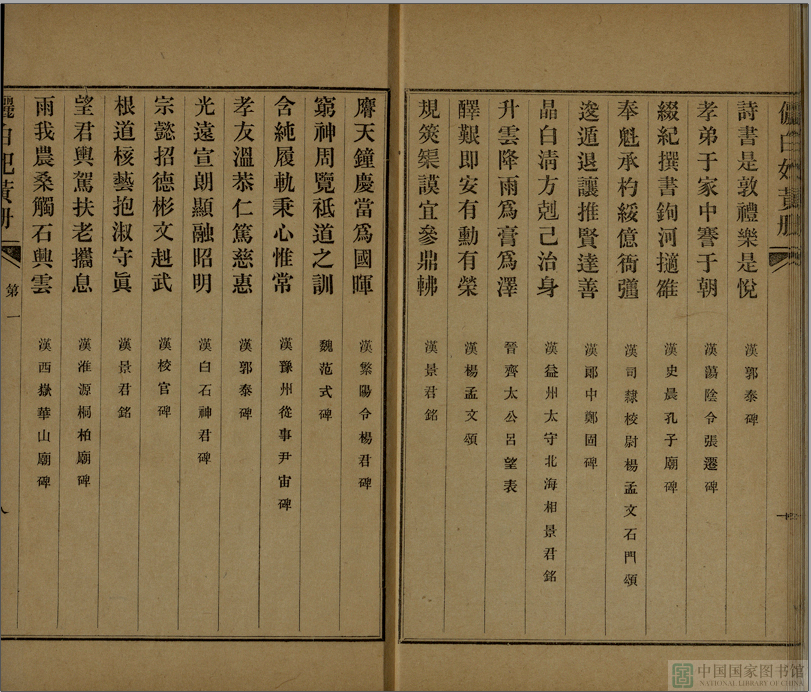 詩書是敦禮樂是悅 漢郭泰碑
孝弟于家中謇于朝 漢蕩陰令張遷碑
綴紀撰書鉤河擿雒 漢史晨孔子廟碑
奉魁承杓綏億衙彊 漢司隸校尉楊孟文石門頌
逡遁退讓推賢達善 漢郎中鄭固碑
晶白清方剋己治身 漢益州太守北海相景君銘
升雲降雨爲膏爲澤 晉齊太公呂望表
醳艱即安有勳有榮 漢楊孟文頌
規筴榘謨宜參鼎 漢景君銘
膺天鐘慶當爲國暉 漢繁陽令楊君碑
窮神周覽祗道之訓 魏范式碑
含純履軌秉心惟常 漢豫州從事尹宙碑
孝友溫恭仁篤慈惠 漢郭泰碑
光遠宣朗顯融昭明 漢白石神君碑
宗懿招德彬文赳武 漢校官碑
根道核藝抱淑守眞 漢景君銘
望君輿駕扶老攜息 漢淮源桐柏廟碑
雨我農桑觸石興雲 漢西嶽華山廟碑
第一
中国国家图书馆
NATIONAL LIBRARY OF CHINA